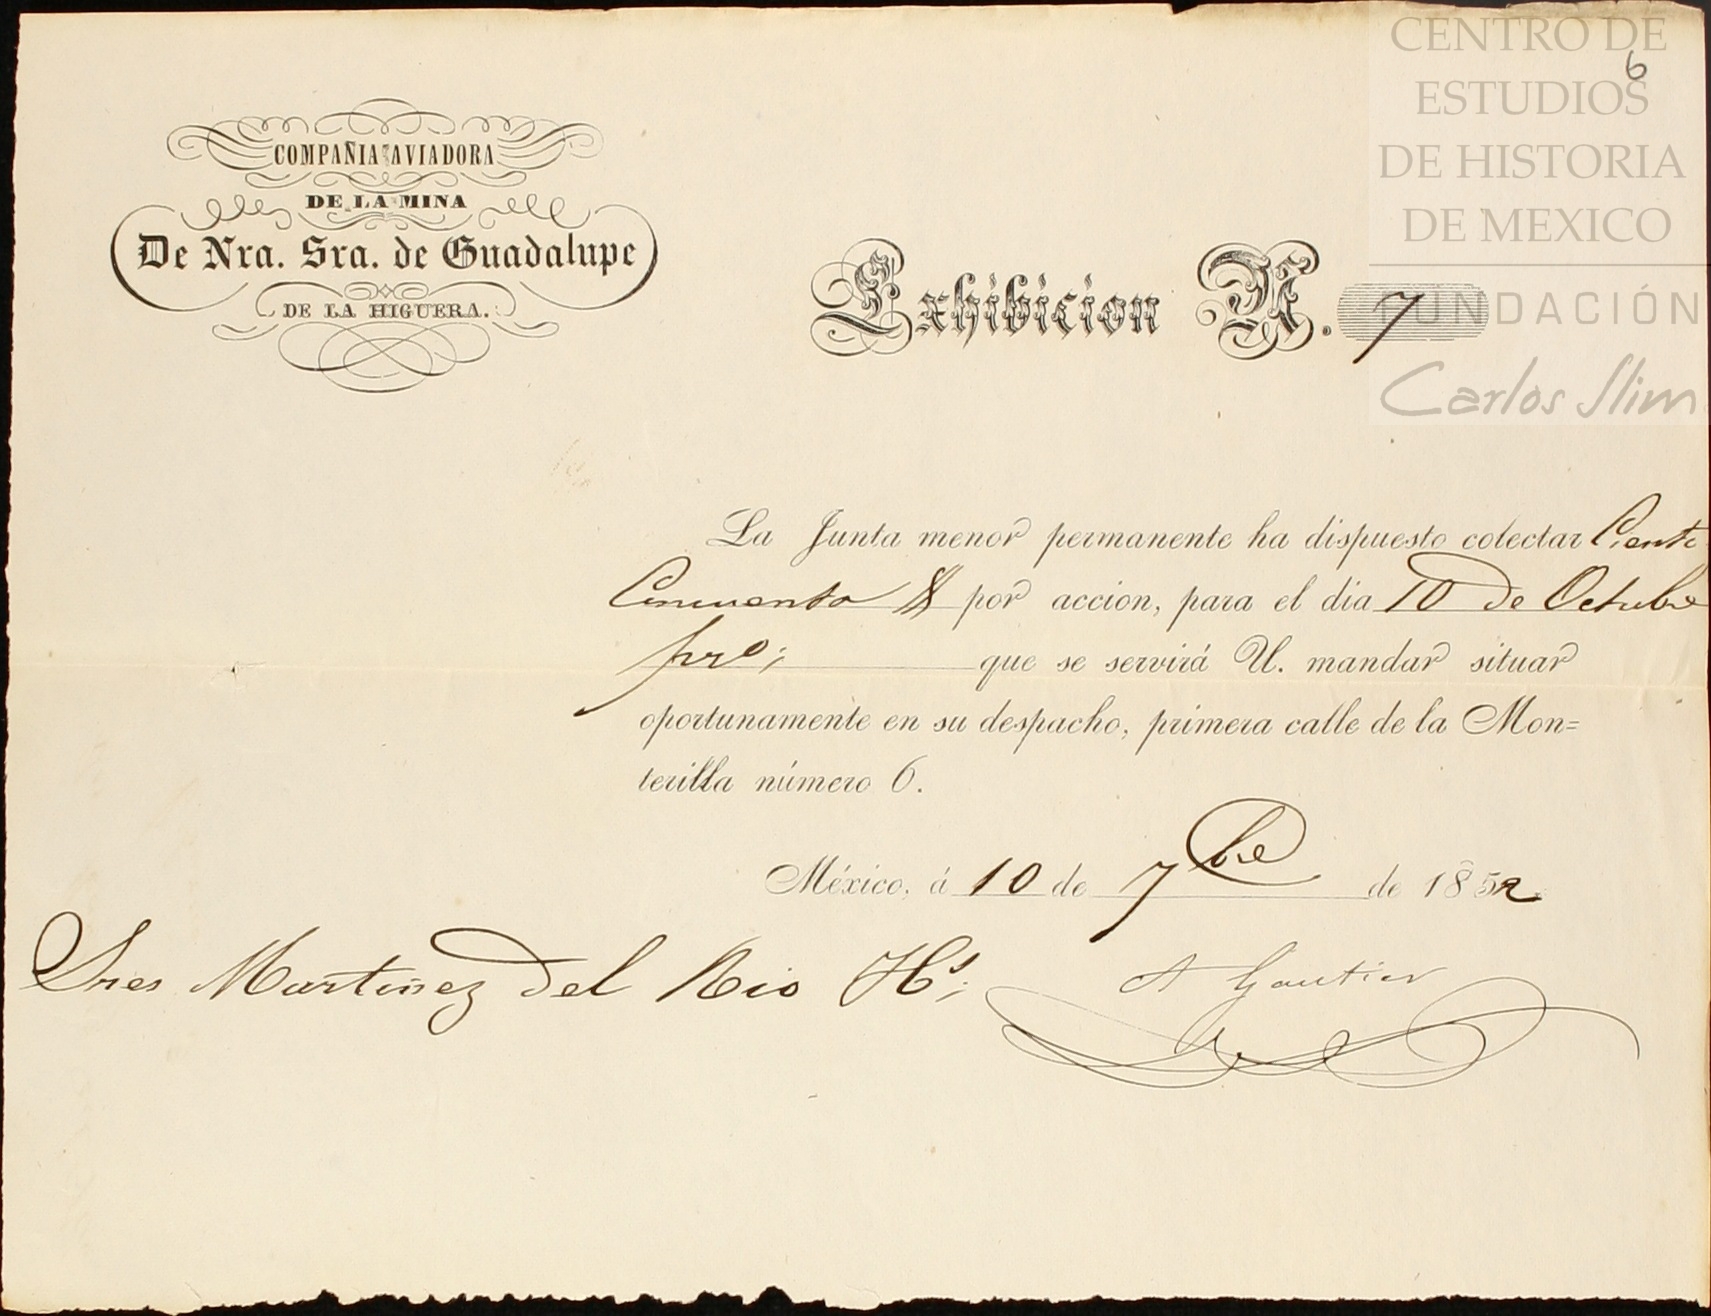 CENTRO DE
ESTUDIOS
DE HISTORIA
DE MEXICO
FUNDACIÓN
Carlos Slim
6
COMPAÑIA AVIADORA
DE LA MINA
De Nra. Sra. de Guadalupe
DE LA HIGUERA.
Exhibicion N. 7
La Junta menor permanente ha dispuesto colectar Ciento
Cincuenta $ por accion, para el dia 10 de Octubre
pro; que se servirá U. mandar situar
oportunamente en su despacho, primera calle de la Mon=
terilla número 6.
México, á 10 de 7bre de 1852
Sres Martinez del Rio Hs;
A Gautier